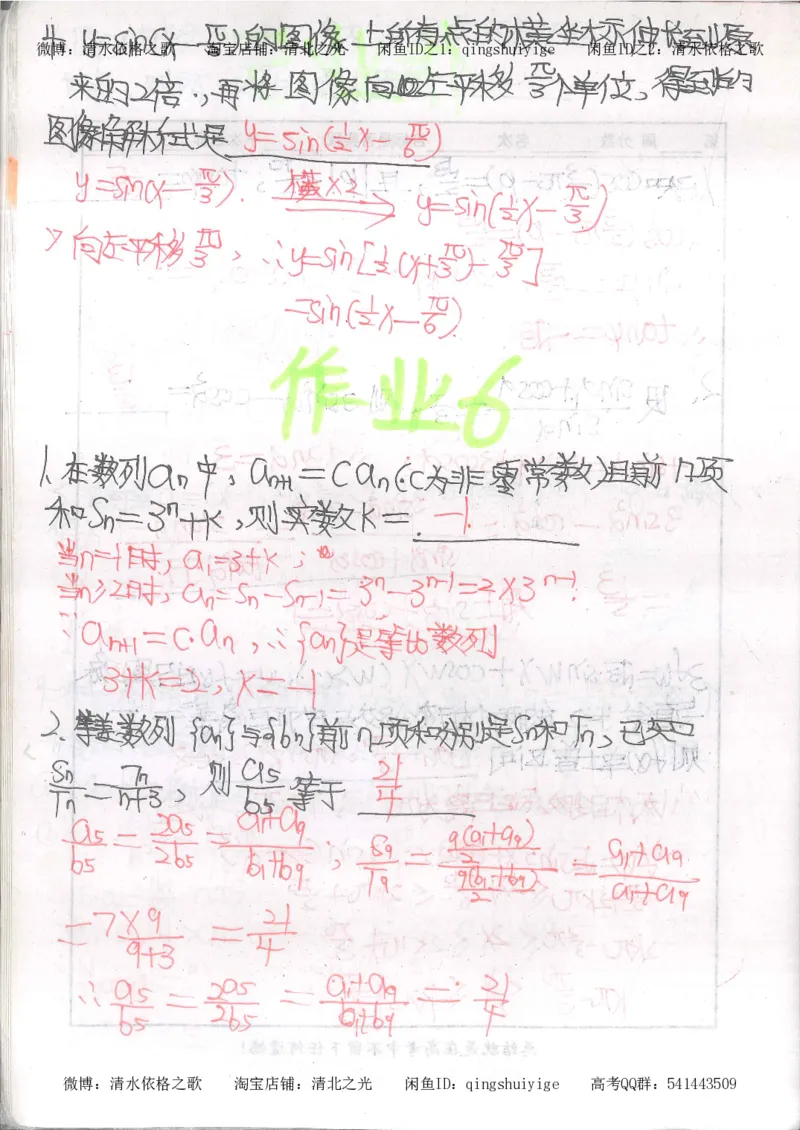 4. y=sin(x-π/3)的图像上所有点的横坐标伸长到原
微博：清水依格之歌 淘宝店铺：清北之光 闲鱼ID之1：qingshuiyige 闲鱼ID之2：清水依格之歌
来的2倍.,再将图像向左平移π/3个单位,得到的
图像解析式是 y=sin(1/2x-π/6)
y=sin(x-π/3). 横×2 → y=sin(1/2x-π/3)
向左平移π/3, ∴y=sin[1/2(x+π/3)-π/3]
=sin(1/2x-π/6)
作业6
1. 在数列an中, an+1=can(c为非零常数)且前n项
和Sn=3^n+k,则实数k= -1.
当n=1时, a1=3+k;
当n≥2时, an=Sn-Sn-1=3^n-3^n-1=2×3^n-1.
∵an+1=c·an, ∴{an}是等比数列
3+k=2, k=-1
2. 等差数列{an}与{bn}前n项和分别是Sn和Tn,已知
Sn/Tn=7n/n+3, 则a5/b5等于 21/4
a5/b5=2a5/2b5=a1+a9/b1+b9; S9/T9=9(a1+a9)/2/9(b1+b9)/2=a1+a9/a1+a9
=7×9/9+3=21/4
∴a5/b5=2a5/2b5=a1+a9/b1+b9=21/4
微博：清水依格之歌 淘宝店铺：清北之光 闲鱼ID：qingshuiyige 高考QQ群：541443509